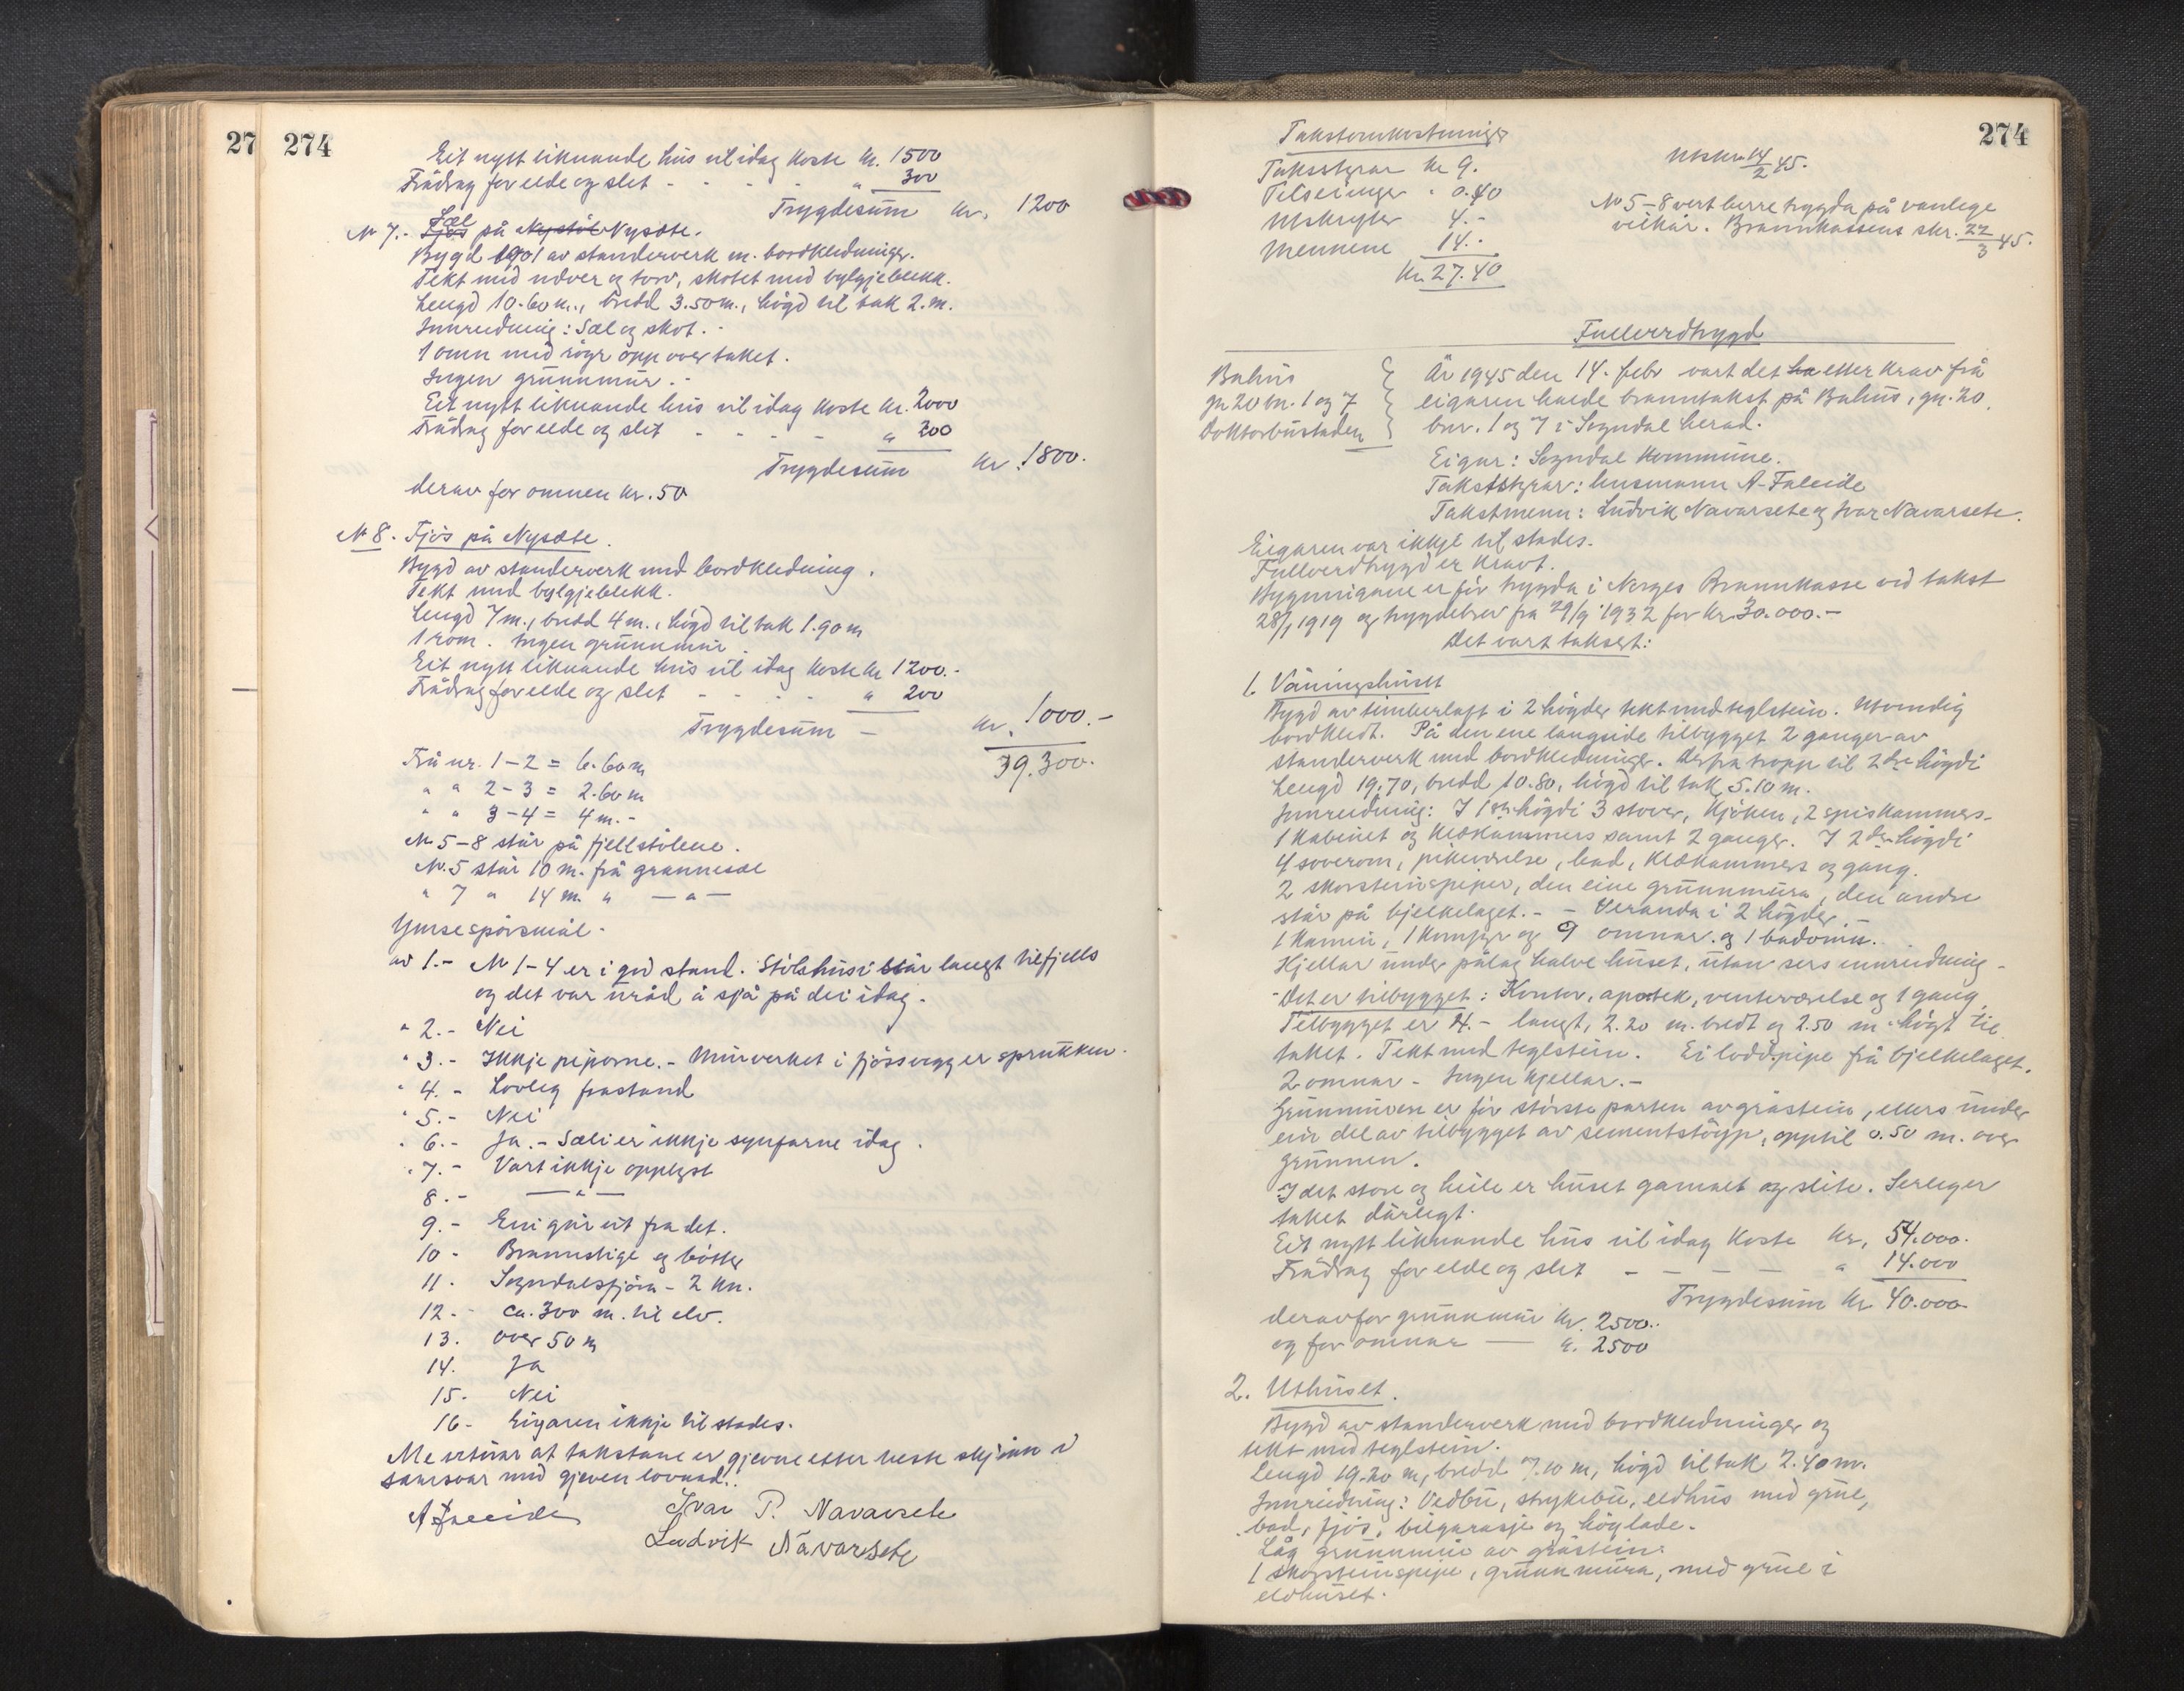 27 274
Eit nytt liknande hus vil idag koste kr. 1500
Frådrag for elde og slit - - - - " 300
Trygdesum kr. 1200
№ 7.- Fjøs Sel på Nystøl Nysæte.
Bygd 1901 av standerverk m. bordkledninger.
Tekt med never og torv, skotet med bylgjeblekk.
Lengd 10.60 m., bredd 3.50 m., høgd til tak 2. m.
Innreidning: Sæl og skot. -
1 omn med røyr opp over taket.
Ingen grunnmur. -
Eit nytt liknande hus vil idag koste kr. 2000
Frådrag for elde og slit - - - - " 200
Trygdesum kr. 1800.
derav for omnen kr. 50
№ 8. Fjøs på Nysæte.
Bygd av standerverk med bordkledning.
Tekt med bylgjeblekk.
Lengd 7 m., bredd 4 m., høgd til tak 1.90 m
1 rom. Ingen grunnmur.
Eit nytt liknande hus vil idag koste kr 1200.-
Frådrag for elde og slit - - - - " 200
Trygdesum - kr. 1000.-
39.300.-
Frå nr. 1-2 = 6.60 m
" " 2-3 = 2.60 m
" " 3-4 = 4 m.-
№ 5-8 står på fjellstølene.
№ 5 står 10 m. frå grannesæl
" 7 " 14 m. " — " —
Ymse spørsmål.
av 1.- № 1-4 er i god stand. Stølshusi står langt tilfjells
og det var uråd å sjå på dei idag.
" 2.- Nei
" 3.- Ikkje piporne.- Murverket i fjøsvegg er sprukken.
" 4.- Lovleg frastand
" 5.- Nei
" 6.- Ja.- Sæli er ikkje synfarne idag.
" 7.- Vart ikkje opplyst
8.- — " —
9.- Ein går ut fra det.
10- Brannstige og bøtter
11. Sogndalsfjøra - 2 km.
12.- ca. 300 m. til elv.
13. over 50 m
14. Ja
15. Nei
16- Eigaren ikkje tilstades.
Me vitnar at takstane er gjevne etter beste skjønn i
samsvar med gjeven lovnad.
A Faleide Ivar P. Navarsete
Ludvik Navarsete
274
Takstomkostninger
Takstyrar kr 9.
Telseinger " 0.40
Utskrifter 4.-
Mennene 14.-
Kr. 27.40
Utskr. 14/2 45.
№ 5-8 vert berre trygda på vanlege
vilkår. Brannkassens skr. 22/3 45.
Fullverdtrygd
Buhus
gn 20 bn. 1 og 7
Doktorbustaden
År 1945 den 14. febr vart det ha etter krav frå
eigaren halde branntakst på Buhus, gn. 20,
bnr. 1 og 7 i Sogndal herad.
Eigar: Sogndal kommune.
Takststyrar: lensmann A. Faleide
Takstmenn: Ludvik Navarsete og Ivar Navarsete.
Eigaren var ikkje til stades.
Fullverdtrygd er kravt.
Bygningane er før trygda i Norges Brannkasse ved takst
28/1 1919 og trygdebrev fra 29/9 1932 for kr. 30.000.-
Det vart taksert:
1. Våningshuset
Bygd av timberlaft i 2 høgder tekt med teglstein. Utvendig
bordkledt. På den ene langside tilbygget 2 ganger av
standerverk med bordkledninger. Derfra tropp til 2dre høgdi
Lengd 19.70, bredd 10.80, høgd til tak 5.10 m.
Innreidning: I 1ste høgdi 3 stover, kjøken, 2 spiskammers-
1 kabinet og klækammers samt 2 ganger. I 2dre høgdi
4 soverom, pikeværelse, bad, klækammers og gang.
2 skorsteinspiper, den eine grunnmura, den andre
står på bjelkelaget. - - Veranda i 2 høgder.-
1 kamin, 1 komfyr og 9 omnar. og 1 badomn.
Kjellar under pålag halve huset, utan sers innreidning -
- Det er tilbygget: Kontor, apotek, venteværelse og 1 gang.
Tilbygget er 4.- langt, 2.20 m. bredt og 2.50 m. høgt til
taket. Tekt med teglstein. Ei loddpipe frå bjelkelaget.
2 omnar - Ingen kjellar.-
Grunnmuren er for største parten av gråstein, ellers under
ein del av tilbygget av sementstøyp, opptil 0.50 m. over
grunnen.
I det store og heile er huset gamalt og slite. Serleger
taket dårlegt.
Eit nytt liknande hus vil idag koste kr. 54.000.
Frådrag for elde og slit - - - - " 14.000
Trygdesum kr 40.000
derav for grunnmur kr. 2500..
og for omnar — " 2500
2. Uthuset.
Bygd av standerverk med bordkledninger og
tekt med teglstein.
Lengd 19.20 m, bredd 7.10 m, høgd til tak 2.40 m.
Innreidning: Vedbu, strykebu, eldhus med grue,
bad, fjøs, bilgarasje og høylade.
Låg grunnmur av gråstein.
1 skorsteinspipe, grunnmura, med grue i
eldhuset.